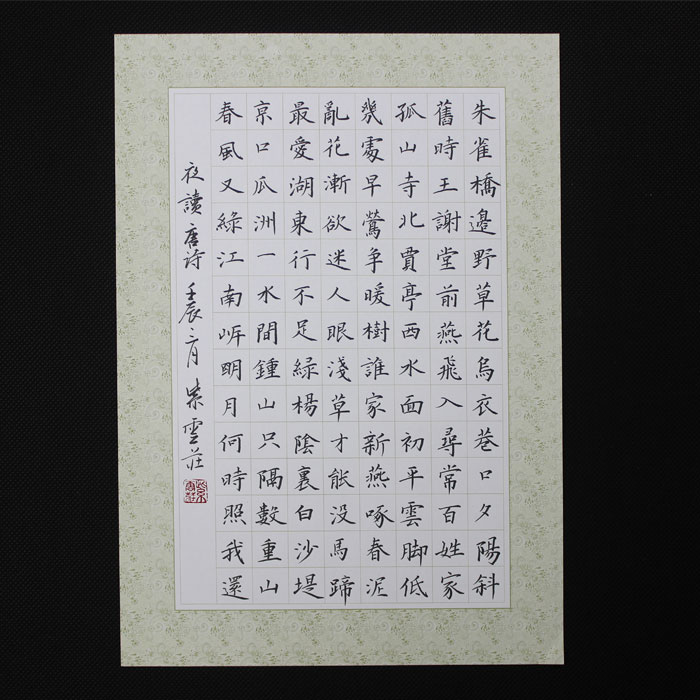 朱雀橋邊野草花烏衣巷口夕陽斜
舊時王謝堂前燕飛入尋常百姓家
孤山寺北賈亭西水面初平雲脚低
幾處早鶯争暖樹誰家新燕啄春泥
亂花漸欲迷人眼淺草才能没馬蹄
最愛湖東行不足綠楊陰裏白沙堤
京口瓜洲一水間鍾山只隔數重山
春風又綠江南岸明月何時照我還
夜讀唐詩 壬辰二月 紫雲莊